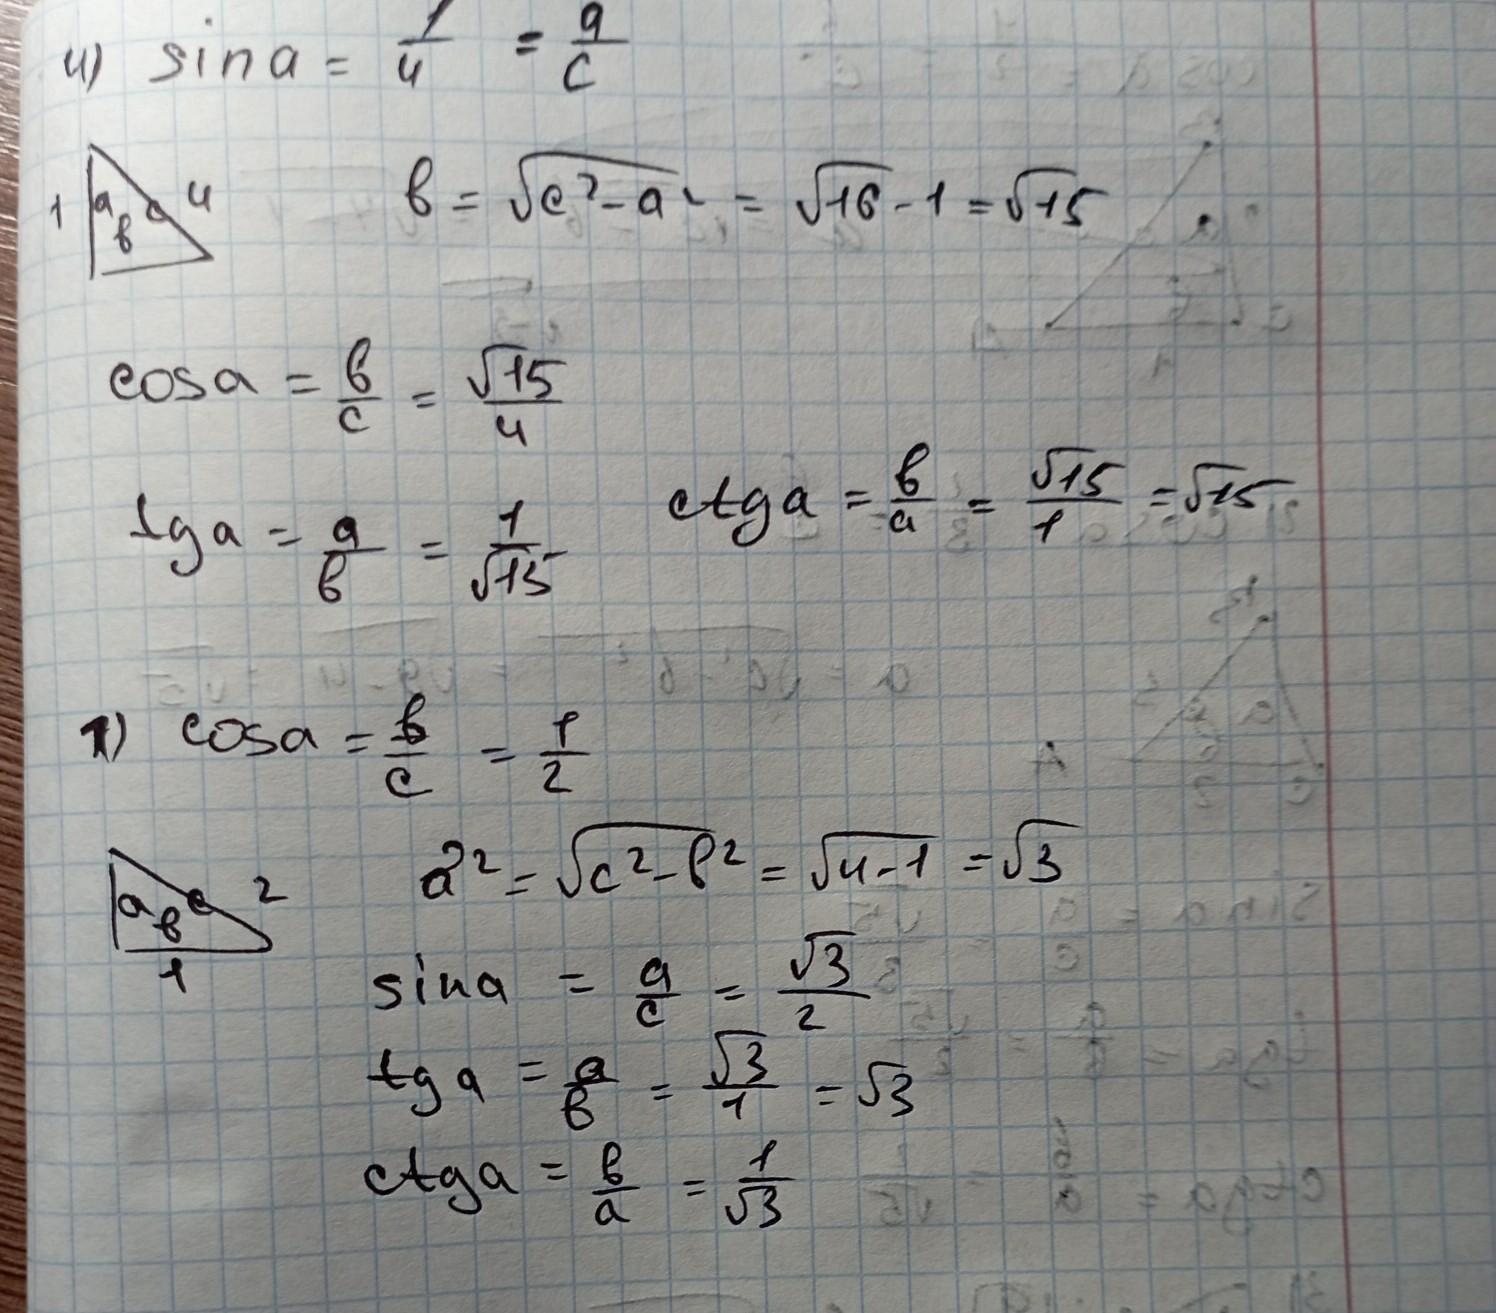 4) sina = 1/4 = a/c
1 a в c 4
в = √c²-a² = √16-1 = √15
cosa = в/c = √15/4
tga = a/в = 1/√15
ctga = в/a = √15/1 = √15
1) cosa = в/c = 1/2
a в c 2
1
a² = √c²-в² = √4-1 = √3
sina = a/c = √3/2
tga = a/в = √3/1 = √3
ctga = в/a = 1/√3